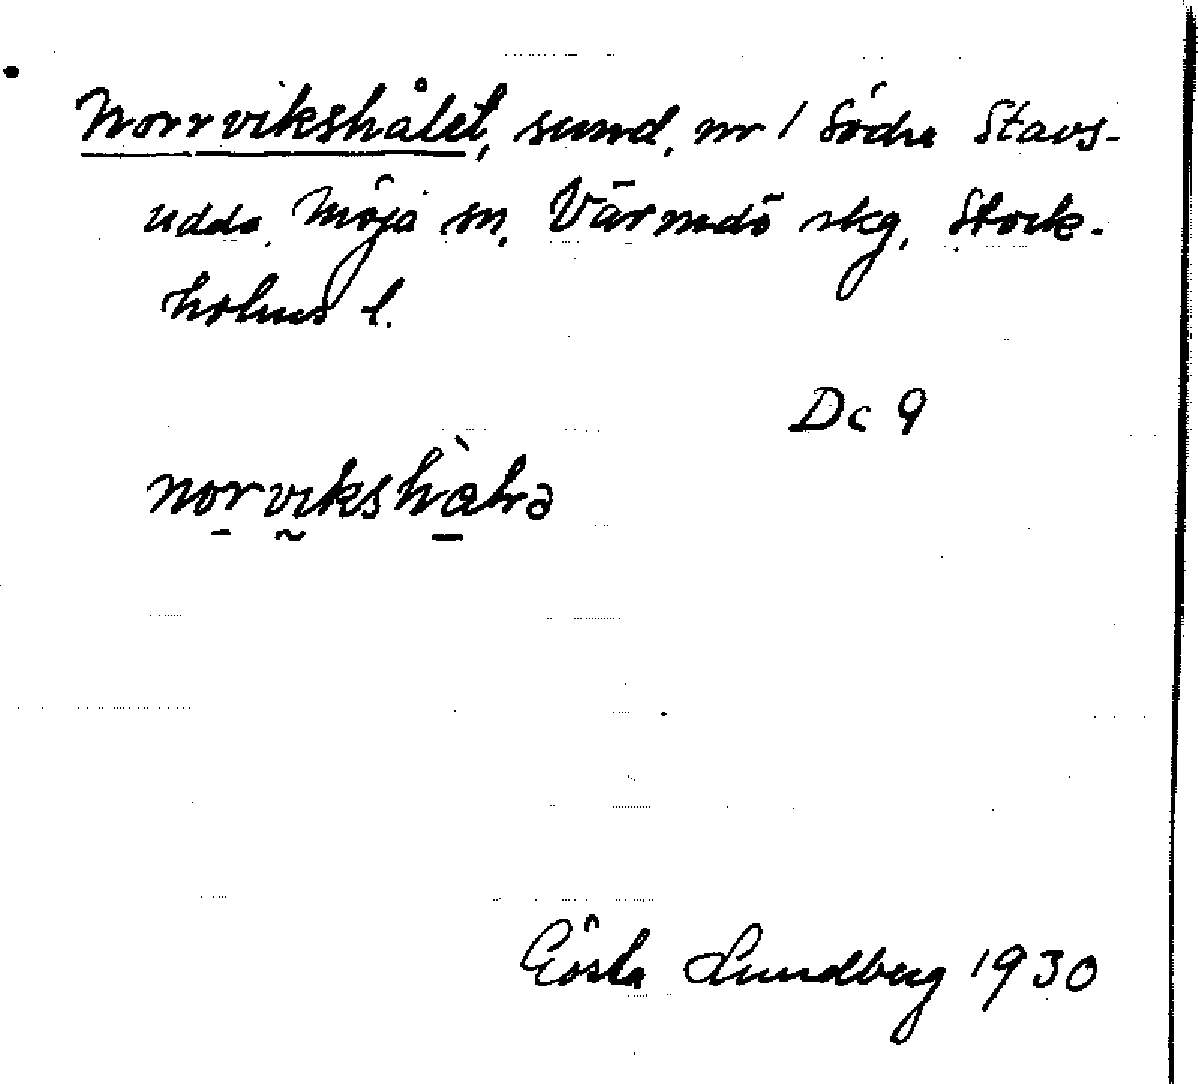 Norrvikshålet, sund, nr 1 Södra Stavs-
udda, Möja sn, Värmdö skg, Stock-
holms l.
Dc 9
norvikshὰlɘ
Gösta Lundberg 1930